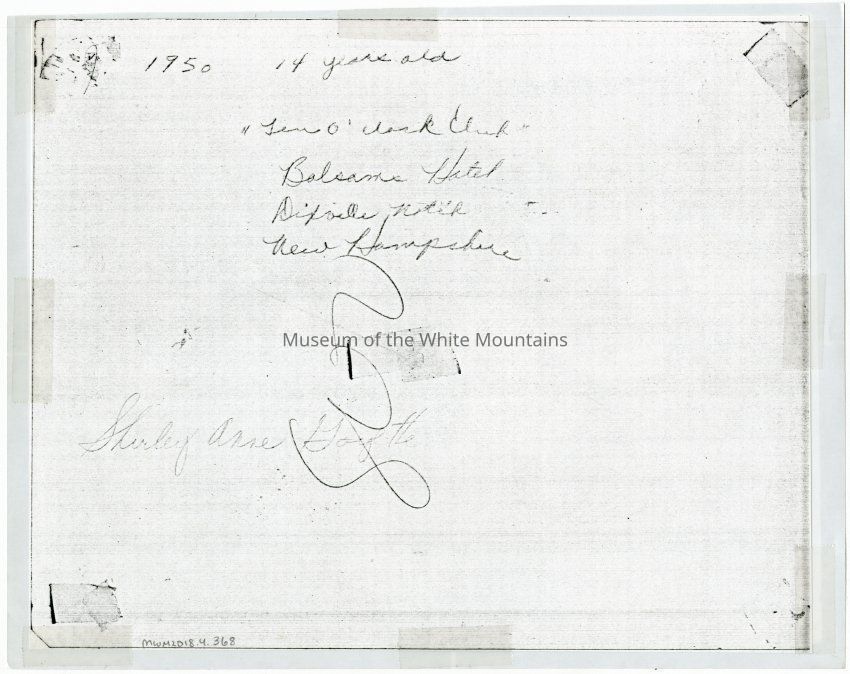 1950 14 years old
"Ten O' Clock Club"
Balsams Hotel
Dixville Notch
New Hampshire
Museum of the White Mountains
Shirley Anne
MWM2018.4.368